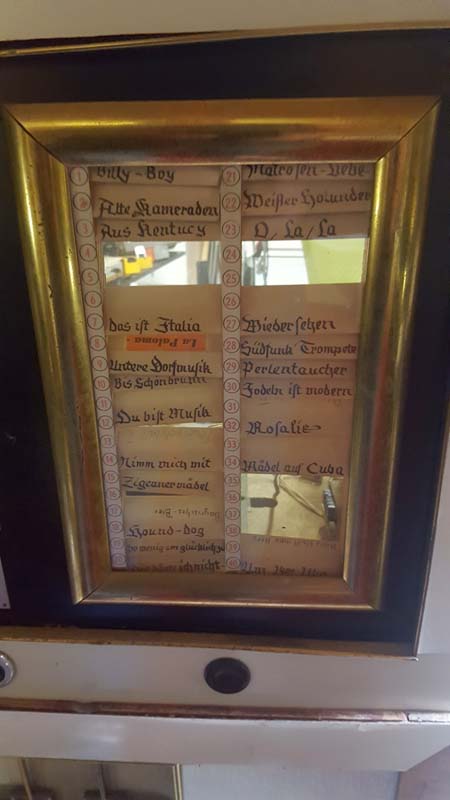 1 Billy-Boy
2 Alte Kameraden
3 Aus Kentucy
4
5
6
7 Das ist Italia
8 La Paloma
9 Unsere Dorfmusik
10 Bis Schönbrunn
11 Du bist Musik
12
13
14 Nimm mich mit
15 Zigeunermädel
16
17 Bayrisches Bier
18 Hound-Dog
19 glücklich
21 Matrosen-Liebe
22 Weißer Holunder
23 O/La/La
24
25
26
27 Wiedersehen
28 Südfunk Trompete
29 Perlentaucher
30 Jodeln ist modern
31
32 Rosalie
33
34 Mädel auf Cuba
35
36
37
38
39
40 Um